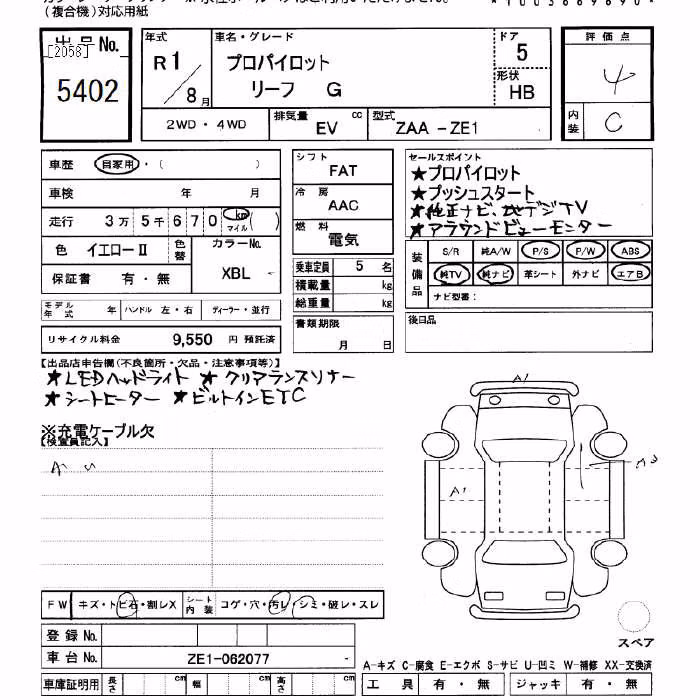 (複合機)対応用紙
*1003669690*
出品No.
[2058]
5402
年式
R1/8月
車名・グレード
プロパイロット
リーフ G
ドア
5
形状
HB
評価点
内装
C
2WD・4WD
排気量
EV cc
型式
ZAA-ZE1
車歴 自家用・( )
車検 年 月
走行 3万5千670 km マイル( )
色 イエローⅡ 色替
カラーNo.
XBL
保証書 有・無
モデル年式 年 ハンドル 左・右 ディーラー・並行
リサイクル料金 9,550 円 預託済
シフト
FAT
冷房
AAC
燃料
電気
乗車定員 5 名
積載量 kg
総重量 kg
書類期限
月 日
セールスポイント
★プロパイロット
★プッシュスタート
★純正ナビ、地デジTV
★アラウンドビューモニター
装備品
S/R 純A/W P/S P/W ABS
純TV 純ナビ 革シート 外ナビ エアB
ナビ型番:
後日品
【出品店申告欄(不良箇所・欠品・注意事項等)】
★LEDヘッドライト ★クリアランスソナー
★シートヒーター ★ビルトインETC
※充電ケーブル欠
【検査員記入】
A1
A1
FW キズ・トビ石・割レX シート内装 コゲ・穴・汚レ・シミ・破レ・スレ
登録No.
車台No. ZE1-062077 -
車庫証明用 長さ cm 幅 cm 高さ cm
スペア
A-キズ C-腐食 E-エクボ S-サビ U-凹ミ W-補修 XX-交換済
工具 有・無 ジャッキ 有・無